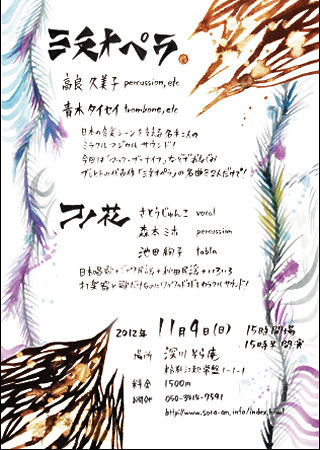 三文オペラ
高良久美子 percussion,etc
青木タイセイ trombone,etc
日本の音楽シーンを支える名手二人の
ミラクルマジカルサウンド!
今回は「マック・ザ・ナイフ」などでおなじみ
ブレヒトの代表作「三文オペラ」の名曲をなんだけで!
コノ花
さとうじゅんこ vocal
森本ミホ percussion
池田絢子 tabla
日本唱歌+ジャワ民謡+秋田民謡+いろいろ
打楽器と歌だけなのに
カラフルサウンド!
2012年 11月4日(日) 15時開場
15時半開演
場所 深川そら庵
江東区常盤1-1-1
料金 1500円
050-3414-7591
http://www.sora-an.info/index.html